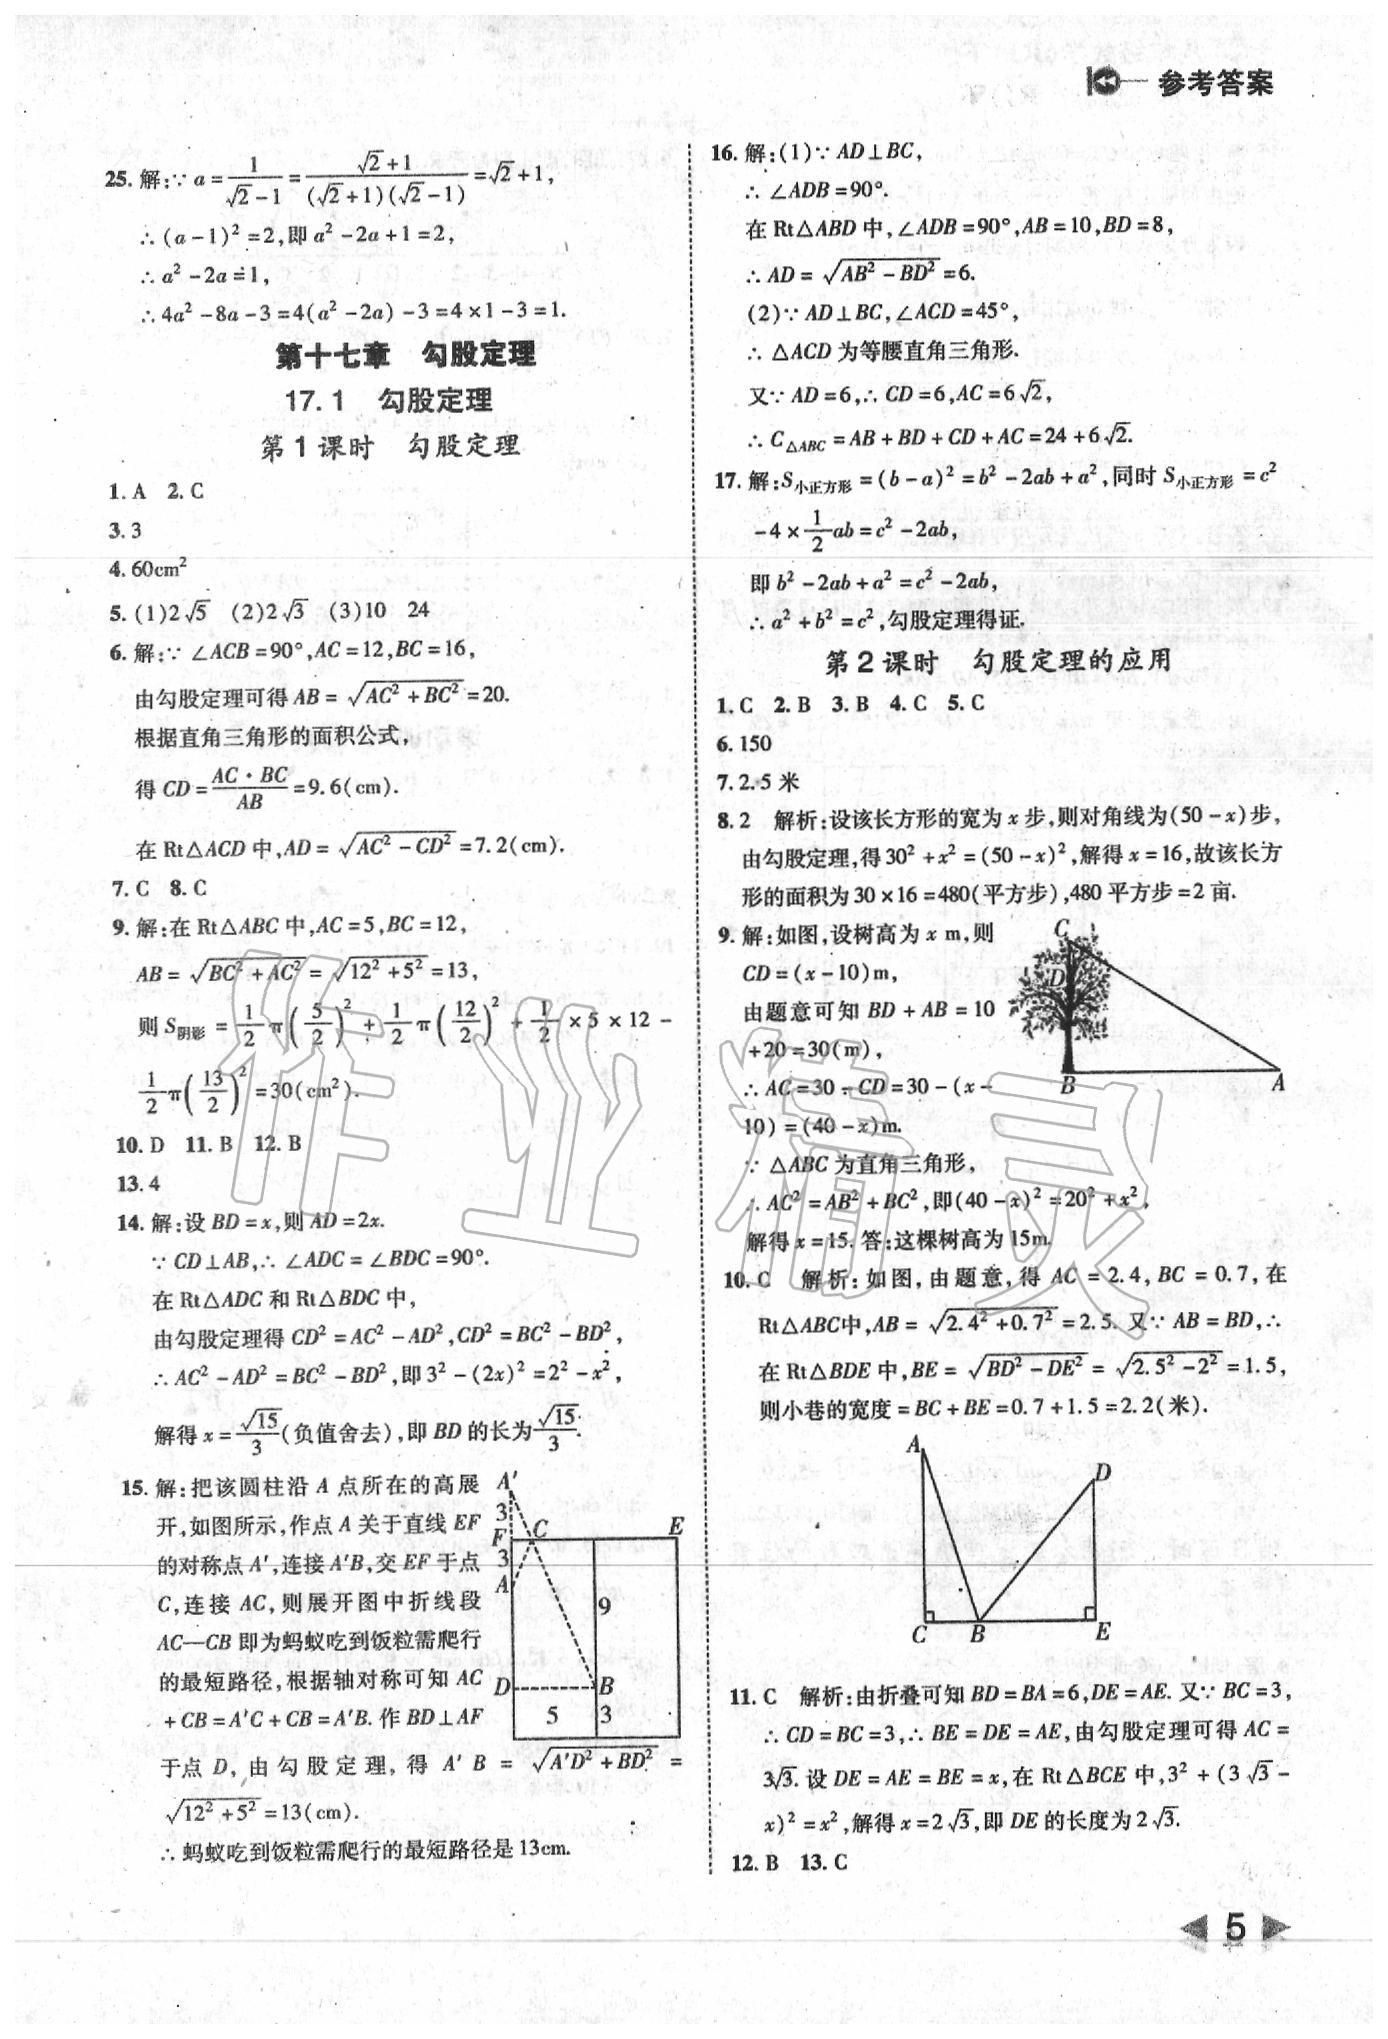 参考答案
25. 解:∵ a = 1/(√2-1) = (√2+1)/((√2+1)(√2-1)) = √2+1,
∴ (a-1)² = 2,即 a²-2a+1=2,
∴ a²-2a=1,
∴ 4a²-8a-3=4(a²-2a)-3=4×1-3=1.
第十七章 勾股定理
17.1 勾股定理
第1课时 勾股定理
1. A 2. C
3. 3
4. 60cm²
5. (1)2√5 (2)2√3 (3)10 24
6. 解:∵ ∠ACB=90°,AC=12,BC=16,
由勾股定理可得 AB=√(AC²+BC²)=20.
根据直角三角形的面积公式,
得 CD=(AC·BC)/AB=9.6(cm).
在 Rt△ACD 中,AD=√(AC²-CD²)=7.2(cm).
7. C 8. C
9. 解:在 Rt△ABC 中,AC=5,BC=12,
AB=√(BC²+AC²)=√(12²+5²)=13,
则 S阴影=1/2π(5/2)²+1/2π(12/2)²+1/2×5×12-
1/2π(13/2)²=30(cm²).
10. D 11. B 12. B
13. 4
14. 解:设 BD=x,则 AD=2x.
∵ CD⊥AB,∴ ∠ADC=∠BDC=90°.
在 Rt△ADC 和 Rt△BDC 中,
由勾股定理得 CD²=AC²-AD²,CD²=BC²-BD²,
∴ AC²-AD²=BC²-BD²,即 3²-(2x)²=2²-x²,
解得 x=√15/3(负值舍去),即 BD 的长为√15/3.
15. 解:把该圆柱沿 A 点所在的高展
开,如图所示,作点 A 关于直线 EF
的对称点 A′,连接 A′B,交 EF 于点
C,连接 AC,则展开图中折线段
AC—CB 即为蚂蚁吃到饭粒需爬行
的最短路径,根据轴对称可知 AC
+CB=A′C+CB=A′B. 作 BD⊥AF
于点 D, 由勾股定理, 得 A′B=√(A′D²+BD²)=
√(12²+5²)=13(cm).
∴ 蚂蚁吃到饭粒需爬行的最短路径是 13cm.
A′
3
F C E
3
A
9
D B
5 3
16. 解:(1)∵ AD⊥BC,
∴ ∠ADB=90°.
在 Rt△ABD 中,∠ADB=90°,AB=10,BD=8,
∴ AD=√(AB²-BD²)=6.
(2)∵ AD⊥BC,∠ACD=45°,
∴ △ACD 为等腰直角三角形.
又∵ AD=6,∴ CD=6,AC=6√2,
∴ C△ABC=AB+BD+CD+AC=24+6√2.
17. 解:S小正方形=(b-a)²=b²-2ab+a²,同时 S小正方形=c²
-4×1/2ab=c²-2ab,
即 b²-2ab+a²=c²-2ab,
∴ a²+b²=c²,勾股定理得证.
第2课时 勾股定理的应用
1. C 2. B 3. B 4. C 5. C
6. 150
7. 2.5 米
8. 2 解析:设该长方形的宽为 x 步,则对角线为(50-x)步,
由勾股定理,得 30²+x²=(50-x)²,解得 x=16,故该长方
形的面积为 30×16=480(平方步),480 平方步=2 亩.
9. 解:如图,设树高为 x m,则
CD=(x-10)m,
由题意可知 BD+AB=10
+20=30(m),
∴ AC=30-CD=30-(x-
10)=(40-x)m.
∵ △ABC 为直角三角形,
∴ AC²=AB²+BC²,即(40-x)²=20²+x²,
解得 x=15. 答:这棵树高为 15m.
C
D
B A
10. C 解析:如图,由题意,得 AC=2.4,BC=0.7,在
Rt△ABC中,AB=√(2.4²+0.7²)=2.5. 又∵ AB=BD,∴
在 Rt△BDE 中,BE=√(BD²-DE²)=√(2.5²-2²)=1.5,
则小巷的宽度=BC+BE=0.7+1.5=2.2(米).
A D
C B E
11. C 解析:由折叠可知 BD=BA=6,DE=AE. 又∵ BC=3,
∴ CD=BC=3,∴ BE=DE=AE,由勾股定理可得 AC=
3√3. 设 DE=AE=BE=x,在 Rt△BCE 中,3²+(3√3-
x)²=x²,解得 x=2√3,即 DE 的长度为 2√3.
12. B 13. C
5
作业精灵